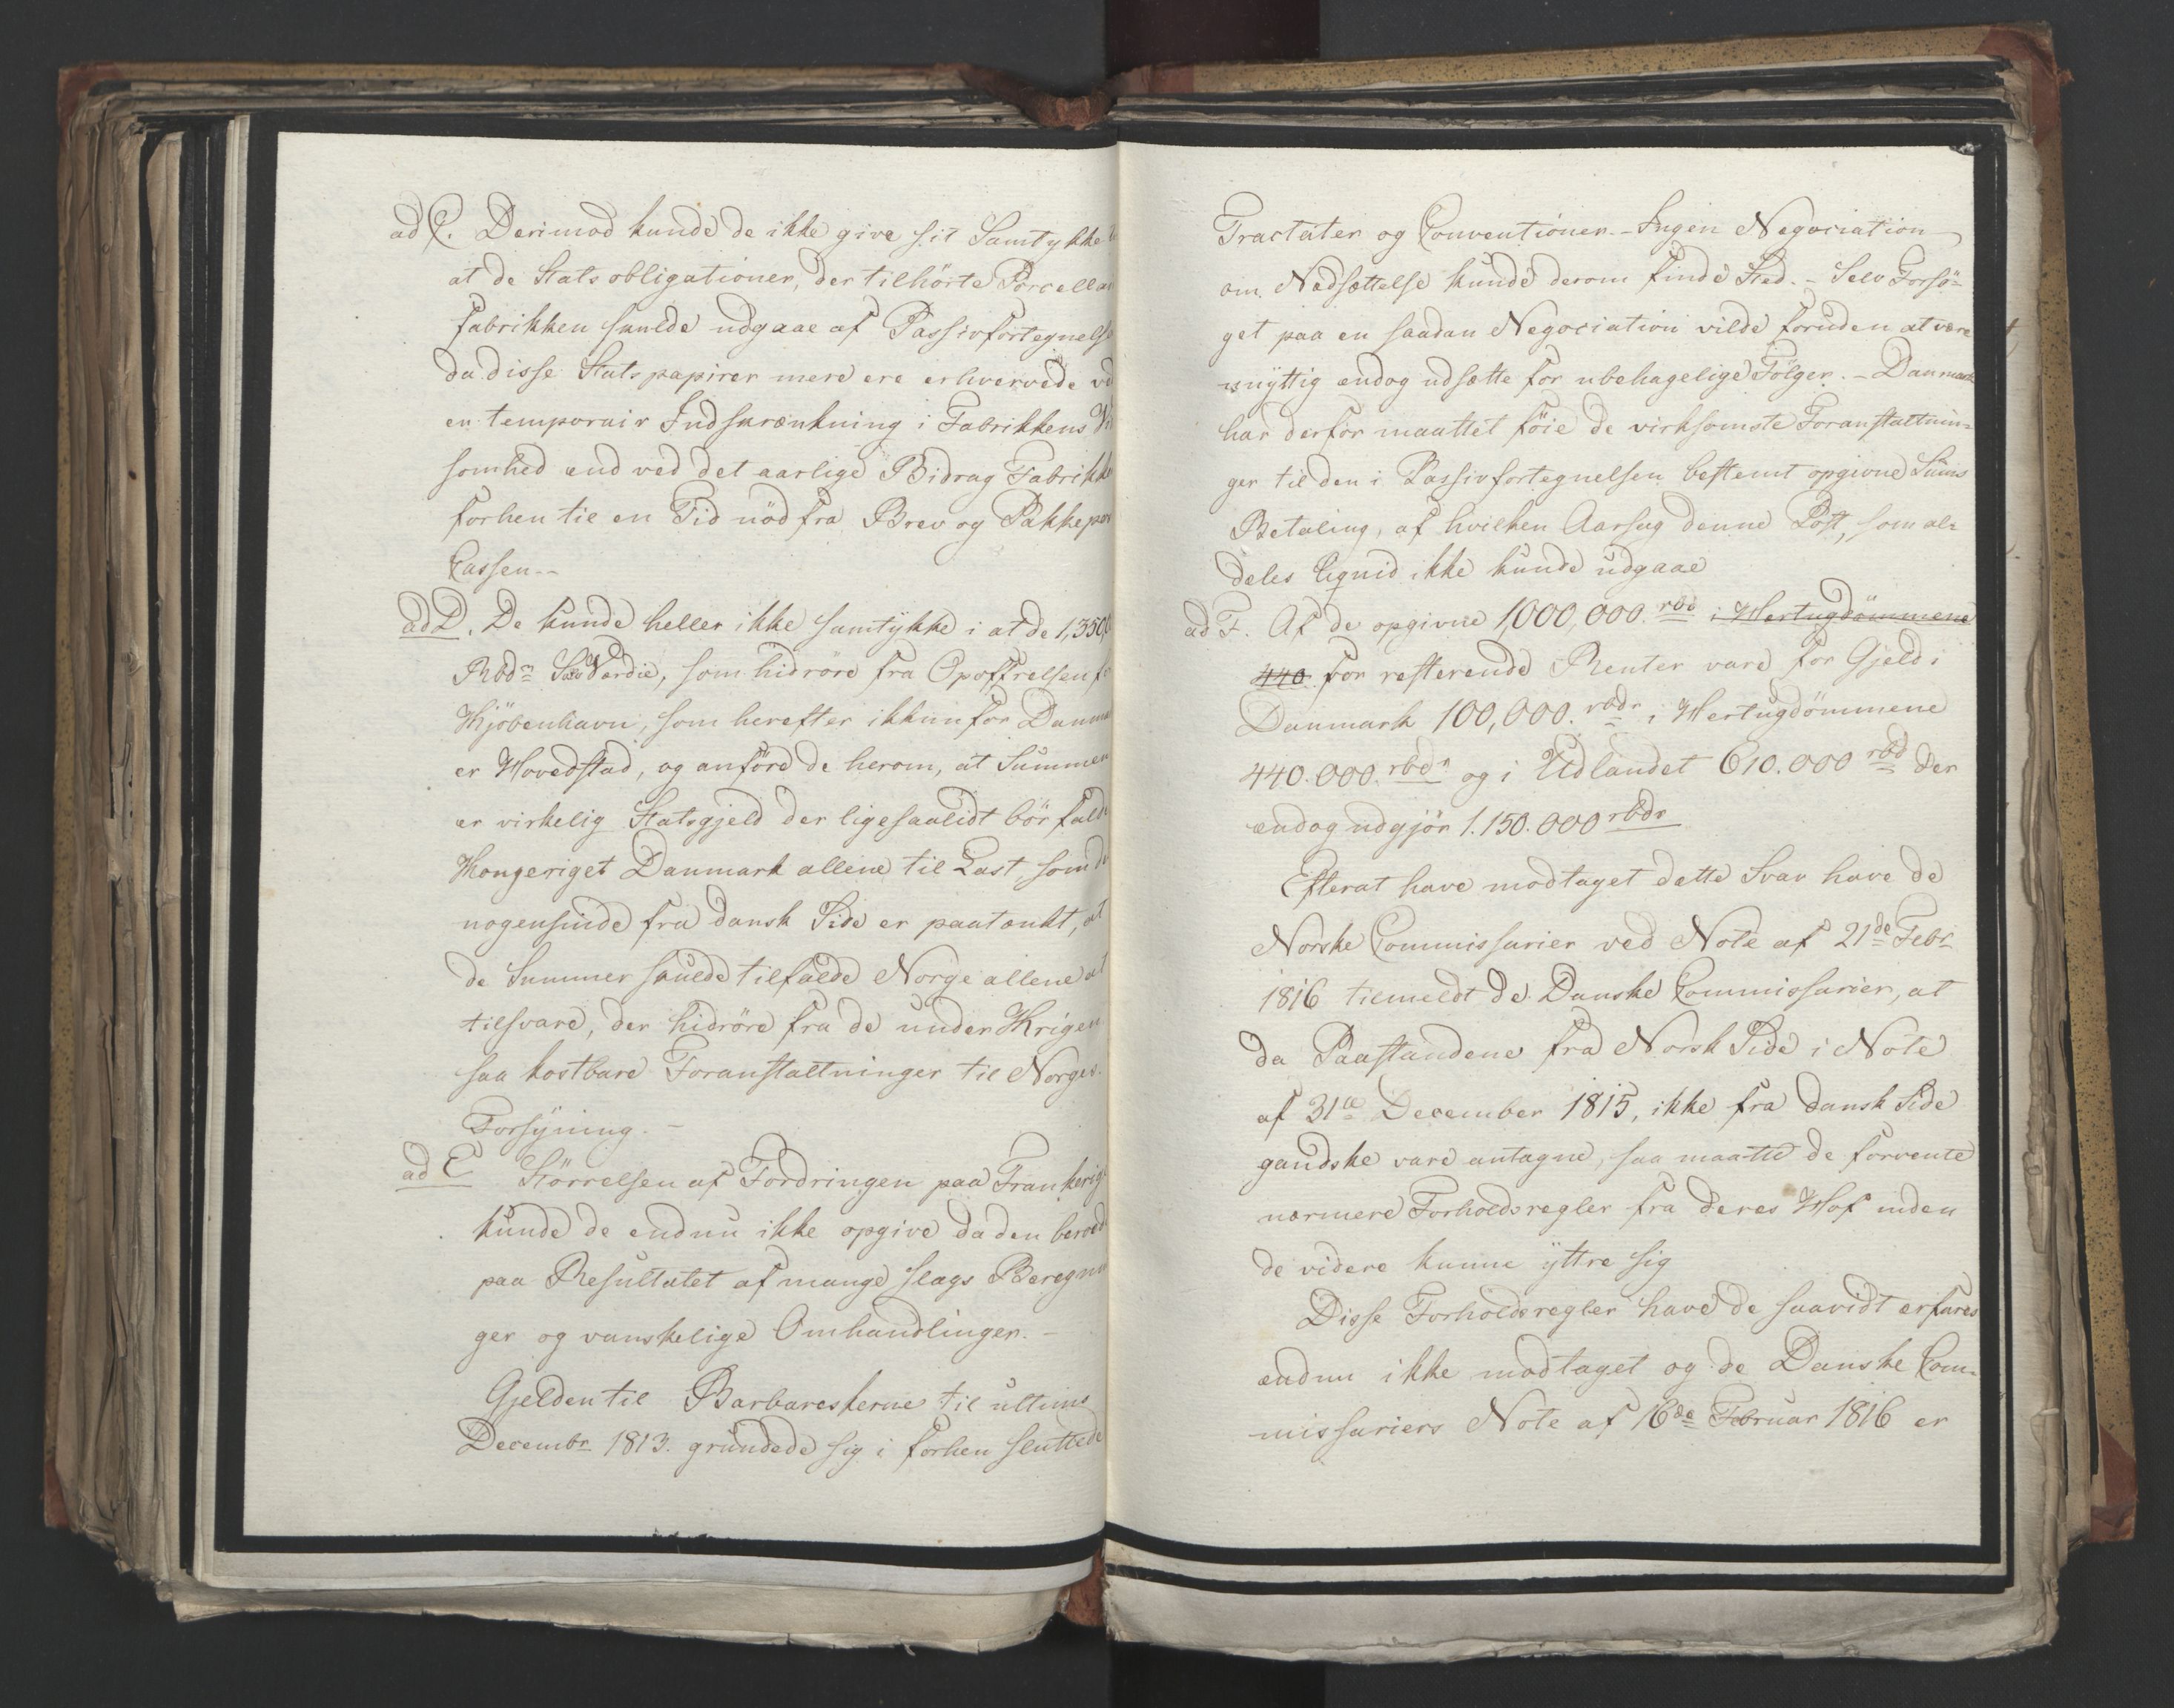 ad C. Derimod kunde de ikke give sit Samtykke
at de Statsobligationer, der tilhörte Porcellan
fabrikken skulde udgaae af Passivfortegnelse
da disse Statspapirer mere ere erhvervede
en temporair Indskrænkning i Fabrikkens
somhed end ved det aarlige Bidrag Fabrikke
forhen til en Tid nöd fra Brev og Pakkepo
Cassen.-
ad D. De kunde heller ikke samtykke i at de 1,350,0
Rbdr Sølv Værdie, som hidröre fra Opoffrelsen
Kjöbenhavn, som herefter ikkun for Danma
er Hovedstad, og anföre de herom, at Summen
er virkelig Statsgjeld der ligesaalidt bör falde
Kongeriget Danmark allene til Last, som de
nogensinde fra dansk Side er paatænkt, at
de Summer skulde tilfalde Norge allene at
tilsvare, der hidröre fra de under Krigen
saa kostbare Foranstaltninger til Norges
Forsÿning. -
ad E Störrelsen af Fordringen paa Frankerig
kunde de endnu ikke opgive da den beroede
paa Resultatet af mange slags Beregnin
ger og vanskelige Omhandlinger. -
Gjelden til Barbareskerne til ultimo
Decembr 1813. grundede sig i forhen sluttede
Tractater og Conventioner. - Ingen Negociation
om Nedsættelse kunde derom finde Sted. - Selv Forsö=
get paa en saadan Negociation vilde foruden at være
unÿttig endog udsætte for ubehagelige Fölger. - Danmark
har derfor maattet föie de virksomste Foranstaltnin=
ger til den i Passivfortegnelsen bestemt opgivne Sums
Betaling, af hvilken Aarsag denne Post, som al=
deles liquid ikke kunde udgaae
ad F. Af de opgivne 1,000,000. rbd i Hertugdömmene
440 for resterende Renter vare for Gjeld i
Danmark 100,000. rbdr i Hertugdömmene
440.000. rbdr og i Udlandet 610.000 rbd der
endog udgjör 1.150.000 rbdr
Efterat have modtaget dette Svar have de
Norske Commissarier ved Note af 21de Febr
1816 tilmeldt de Danske Commissarier, at
da Paastandene fra Norsk Side i Note
af 31te December 1815, ikke fra dansk Side
gandske vare antagne, saa maatte de forvente
nærmere Forholdsregler fra deres Hof inden
de videre kunne ÿttre sig
Disse Forholdsregler have de saavidt erfares
endnu ikke modtaget og de Danske Com=
missariers Note af 16de Februar 1816 er